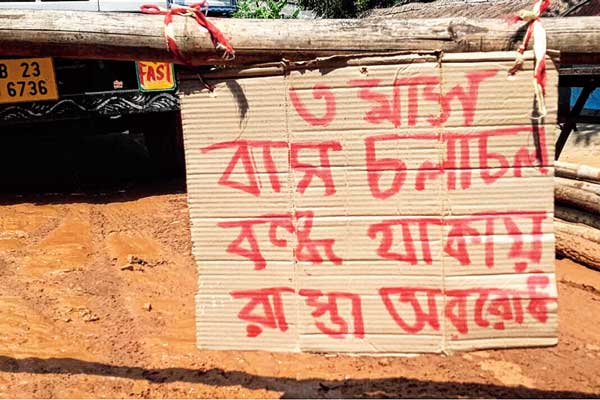 B 23
6736
FAST
৩ মাস
বাস চলাচল
বন্ধ থাকায়
রাস্তা অবরোধ